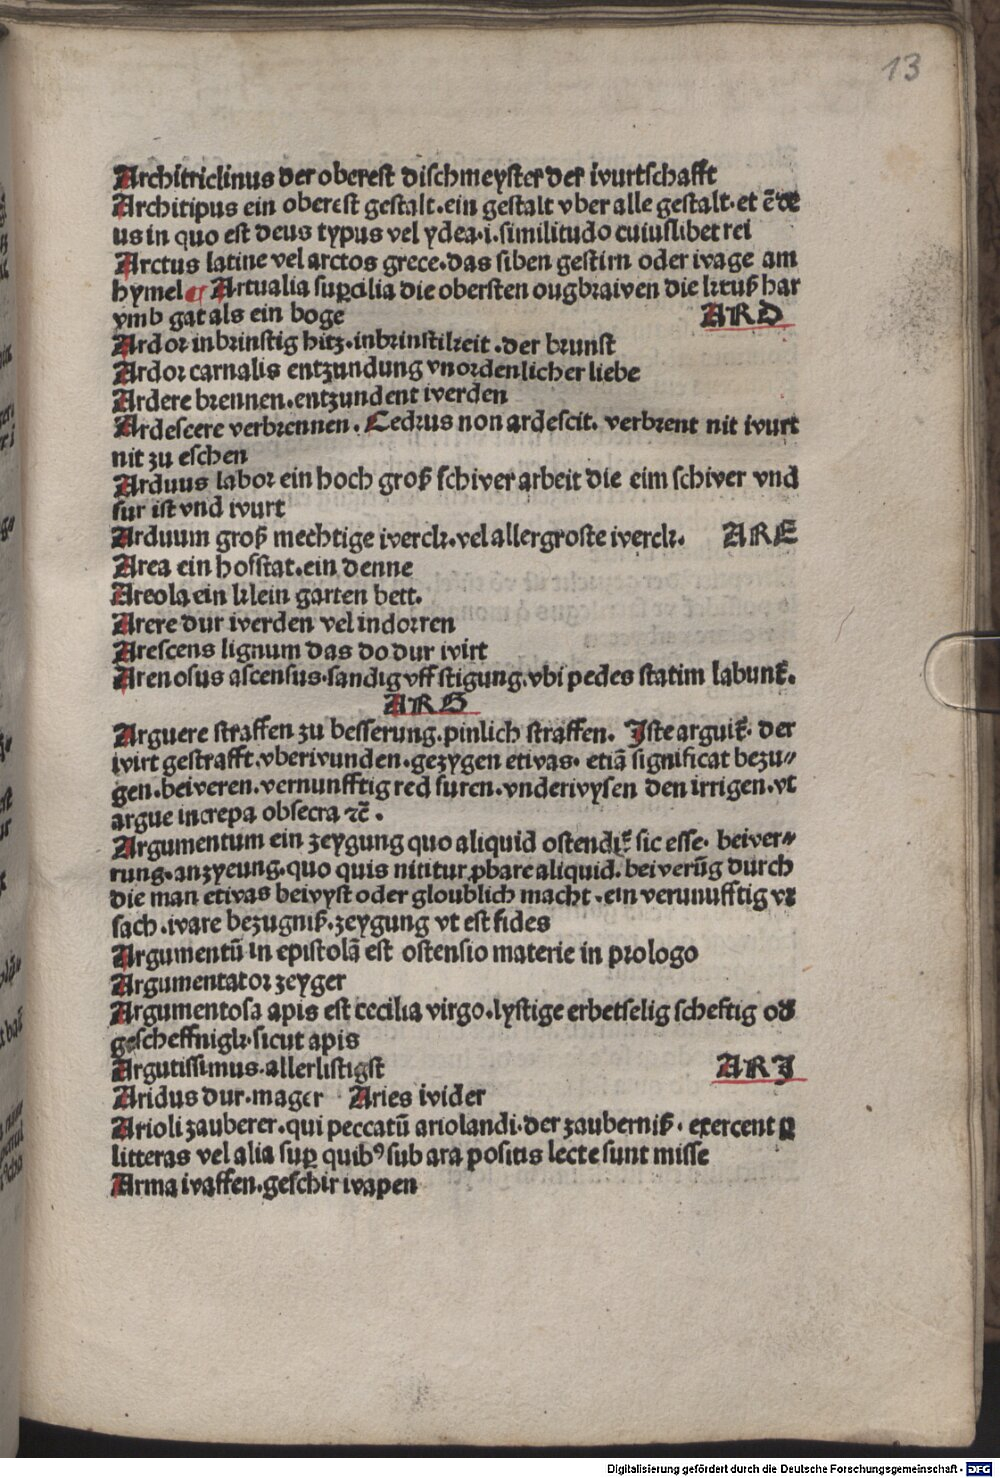 13
Architriclinus der oberest dischmeyster der wurtschafft
Architipus ein oberest gestalt.ein gestalt vber alle gestalt.et ē de
us in quo est deus typus vel ydea.i.similitudo cuiuslibet rei
Arctus latine vel arctos grece.das siben gestirn oder wage am
hymel ¶ Artualia suꝑcilia die obersten ougbrawen die kreuß har
vmb gat als ein boge ARD
Ardor inbrinstig hitz.inbrinstikeit.der brunst
Ardor carnalis entzundung vnordenlicher liebe
Ardere brennen.entzundent werden
Ardescere verbrennen. Cedrus non ardescit. verbrent nit wurt
nit zu eschen
Arduus labor ein hoch groß schwer arbeit die eim schwer vnd
sur ist vnd wurt
Arduum groß mechtige werck.vel allergroste werck. ARE
Area ein hofstat.ein denne
Areola ein klein garten bett.
Arere dur werden vel indorren
Arescens lignum das do dur wirt
Arenosus ascensus.sandig vff stigung.vbi pedes statim labunt᷑.
ARG
Arguere straffen zu besserung.pinlich straffen. Iste arguit᷑. der
wirt gestrafft.vberwunden.gezygen etwas. etiā significat bezu⸗
gen.beweren.vernunfftig red furen.vnderwysen den irrigen.vt
argue increpa obsecra ⁊c̄.
Argumentum ein zeygung quo aliquid ostendit᷑ sic esse. bewer⸗
rung.anzyeung.quo quis nititur ꝓbare aliquid.bewerūg durch
die man etwas bewyst oder gloublich macht.ein verunufftig vr
sach.ware bezugniß.zeygung vt est fides
Argumentū in epistolā est ostensio materie in prologo
Argumentator zeyger
Argumentosa apis est cecilia virgo.lystige erbetselig scheftig od
gescheffnigk.sicut apis
Argutissimus.allerlistigst ARI
Aridus dur.mager Aries wider
Arioli zauberer.qui peccatū ariolandi.der zauberniß. exercent ꝑ
litteras vel alia suꝑ quibꝰ sub ara positis lecte sunt misse
Arma waffen.geschir wapen
Digitalisierung gefördert durch die Deutsche Forschungsgemeinschaft - DFG